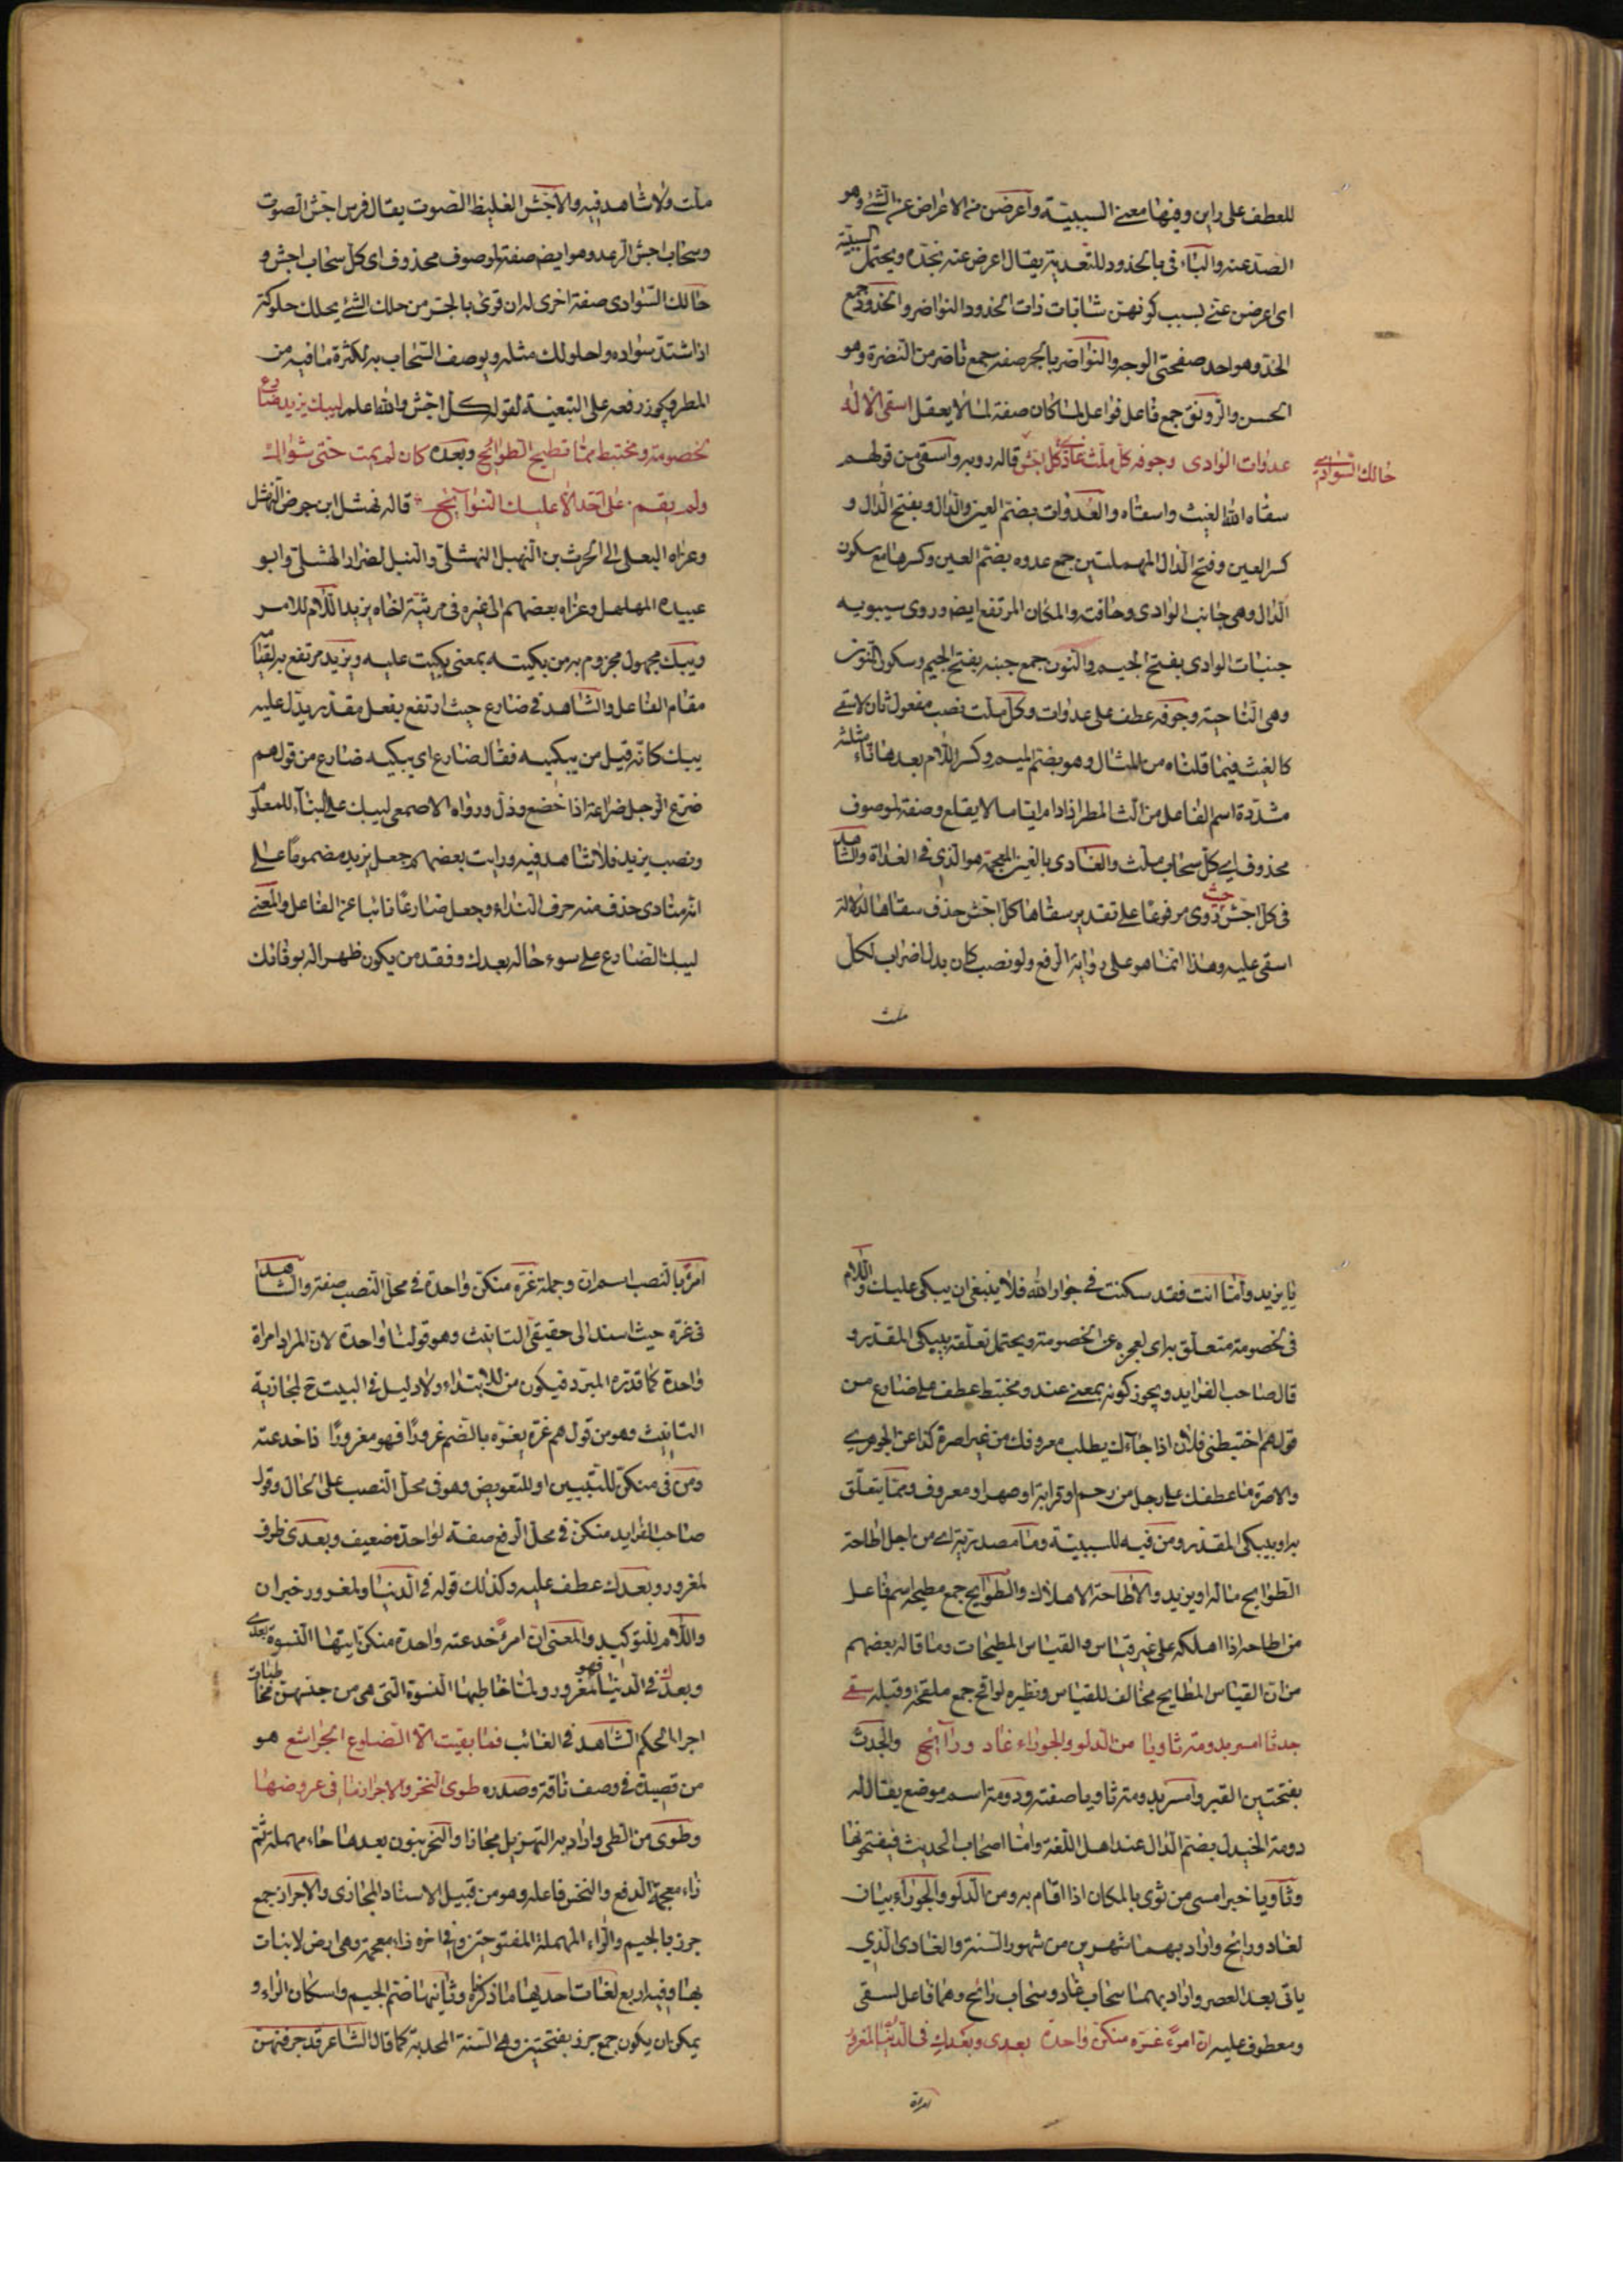 للعطف على راين وفيها معنى السببيّة واعرضن من الاعراض عن الشئ وهو
الصد عنه والباء فى بالخدود للتعدية يقال اعرض عنه بخده ويحتمل السببيّة
اى اعرضن عنى بسبب كونهن شابّات ذات الخدود النواضر والخدود جمع
الخد وهو احد صفحتى الوجه والنواضر بالجر صفة جمع ناضر من النضرة وهو
الحسن والرونق جمع فاعل فواعل لما كان صفة لما لا يعقل اسقى الاله
عدوات الوادى وجوفه كل ملث غادى كل اجش قاله روبه واسقى من قولهم
حالك السوادى
سقاه الله الغيث واسقاه والعدوات بضم العين والدال وبفتح الدال و
كسر العين وفتح الدال المهملتين جمع عدوه بضم العين وكسرها مع سكون
الدال وهى جانب الوادى وحافته والمكان المرتفع ايضا وروى سيبويه
جنبات الوادى بفتح الجيم والنون جمع جنبه بفتح الجيم وسكون النون
وهى الناحية وجوفه عطف على عدوات وكل ملث نصب مفعول ثان لاسقى
كالغيث فيما قلناه من المثال وهو بضم الميم وكسر اللام بعدها ثاء مثلثه
مشدّدة اسم الفاعل من الث المطر اذا دام اياما لا يقلع وصفة لموصوف
محذوف اى كل سحاب ملث والغادى بالغين المعجمة هو الذى فى الغداة والشاهد
فى كل اجش حيث روى مرفوعا على تقدير سقاها كل اجش حذف سقاها لدلالة
اسقى عليه وهذا انما هو على رواية الرفع ولو نصب كان بدلا اضراب لكل
ملث
ملث ولا شاهد فيه والاجش الغليظ الصوت يقال فرس اجش الصوت
وسحاب اجش الرعد وهو ايضا صفة لموصوف محذوف اى كل سحاب اجش و
حالك السوادى صفة اخرى له ان قرى بالجر من حلك الشئ يحلك حلوكة
اذا اشتد سواده واحلولك مثله ويوصف السحاب به لكثرة ما فيه من
المطر ويجوز رفعه على التبعية لقوله كل اجش والله اعلم ليبك يزيد ضارع
لخصومة ومختبط مما تطيح الطوائح وبعده كان لم يمت حتى سواك
ولم يقم على احد الا عليك النوائح قاله نهشل ابن جرى النهشلى
وعزاه البعلى الى الحرث بن النهيل النهشلى والنيل لضرار الهشلى وابو
عبيده المهلهل وعزاه بعضهم الى غيره فى مرثية لخاه يزيد اللام للامر
ويبك مجهول مجزوم به من بكيته بمعنى بكيت عليه ويزيد مرتفع به لقيامه
مقام الفاعل والشاهد فى ضارع حيث ارتفع بفعل مقدر يدل عليه
يبك كانه قيل من يبكيه فقال ضارع اى يبكيه ضارع من قولهم
ضرع الرجل ضراعة اذا خضع وذل ورواه الاصمعى ليبك على البناء للمعلوم
ونصب يزيد فلا شاهد فيه ورايت بعضهم جعل يزيد مضموما على
انه منادى حذف منه حرف النداء وجعل ضارعا نائبا عن الفاعل والمعنى
ليبك الضارع على سوء حاله بعدك وفقد من يكون ظهرا له بوفاتك
يا يزيد واما انت فقد سكنت فى جوار الله فلا ينبغى ان يبكى عليك واللام
فى لخصومة متعلق به اى لعجزه عن الخصومة ويحتمل تعلقه بيبكى المقدر و
قال صاحب الفرايد ويجوز كونه بمعنى عند ومختبط عطف على ضارع من
قولهم اختبطنى فلان اذا جاءك يطلب معروفك من غير اصرة كذا عن الجوهرى
والاصرة ما عطفك على رجل من رحم او قرابة او صهر او معروف ومما يتعلق
به او بيبكى المقدر ومن فيه للسببيّة وما مصدرية اى من اجل اطاحة
الطوايح ماله او يزيد والاطاحة الاهلاك والطوايح جمع مطيحة اسم فاعل
من اطاحه اذا اهلكه على غير قياس والقياس المطيحات وما قاله بعضهم
من ان القياس المطايح مخالف للقياس ونظيره لواقح جمع ملقحة وقيله سقى
جدثا امسى بدومة ثاويا من الدلو والجوزاء غاد ورائح والجدث
بفتحتين القبر وامسى بدومة ثاويا صفته ودومة اسم موضع يقال له
دومة الجندل بضم الدال عند اهل اللغة واما اصحاب الحديث فيفتحونها
وثاويا خبر امسى من ثوى بالمكان اذا اقام به ومن الدلو والجوزاء بيان
لغاد ورائح واراد بهما شهرين من شهور السنة والغادى الذى
ياتى بعد العصر واراد بهما سحاب غاد وسحاب رائح وهما فاعل لسقى
ومعطوف عليه ان امرء غره منكن واحدة بعدى وبعدك فى الدنيا لمغرور
امرء
امرء بالنصب اسم ان وجملة غره منكن واحدة فى محل النصب صفته والشاهد
فى غره حيث اسند الى حقيقى التانيث وهو قولنا واحدة لان المراد امراة
واحدة كما قدره المبرد فيكون من للابتداء ولا دليل فى البيت ح لمجازية
التانيث وهو من قولهم غره يغره بالضم غرورا فهو مغرورا اذا خدعه
ومن فى منكن للتبيين او للتعويض وهو فى محل النصب على الحال وقول
صاحب الفرايد منكن فى محل الرفع صفة لواحدة ضعيف وبعدى ظرف
لمغرور وبعدك عطف عليه وكذلك قوله فى الدنيا ولمغرور خبر ان
واللام للتوكيد والمعنى ان امرء خدعته واحدة منكن ايتها النسوة بعدى
وبعدك فى الدنيا فهو لمغرور ولما خاطبها النسوة التى هى من جنسهن مخاطبات
اجرا الحكم الشاهد فى الغائب فما بقيت الا الضلوع الجراشع هو
من قصيدة فى وصف ناقة وصدره طوى النحز والاجراز ما فى عروضها
وطوى من الطى واراد به التهزيل مجازا والنحز بنون بعدها حاء مهملة ثم
زاء معجمة الدفع والنخس فاعله وهو من قبيل الاسناد المجازى والاجراز جمع
جرز بالجيم والراء المهملة المفتوحتين وفى اخره زاء معجمة وهى ارض لا نبات
بها وفيه اربع لغات احديها ما ذكرناه وثانيها ضم الجيم واسكان الراء و
يمكن ان يكون جمع جرز بفتحتين وهى السنة المجدبة كما قال الشاعر قد جرفتهن